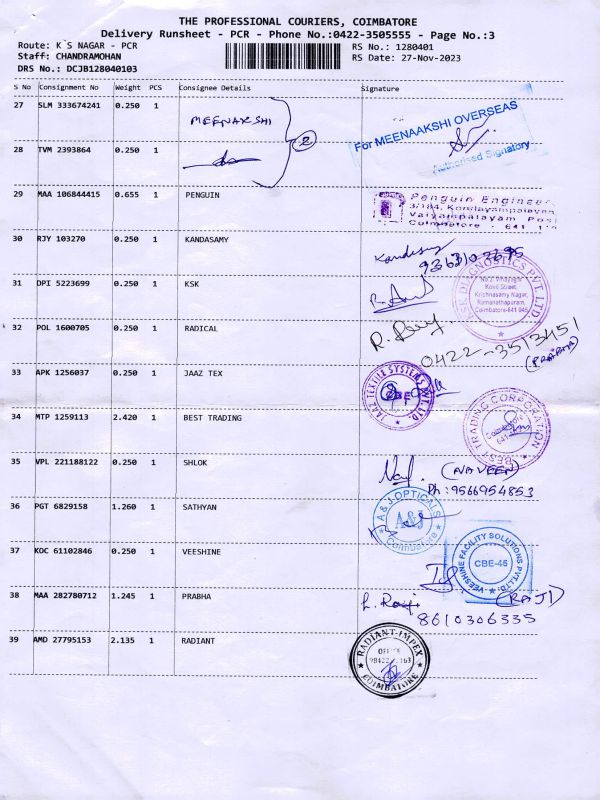 THE PROFESSIONAL COURIERS, COIMBATORE
Delivery Runsheet - PCR - Phone No.:0422-3505555 - Page No.:3
Route: K S NAGAR - PCR
RS No.: 1280401
Staff: CHANDRAMOHAN
RS Date: 27-Nov-2023
DRS No.: DCJB128040103
S No Consignment No Weight PCS Consignee Details Signature
27 SLM 333674241 0.250 1 MEENAKSHI
For MEENAAKSHI OVERSEAS
Authorised Signatory
2
28 TVM 2393864 0.250 1
29 MAA 106844415 0.655 1 PENGUIN
Penguin Engineer
3/184, Kondayampalayam
Vaiyampalayam Post
Coimbatore - 641 110
30 RJY 103270 0.250 1 KANDASAMY
Kandasamy
31 DPI 5223699 0.250 1 KSK
KSK DIAGNOSTICS PVT. LTD.
Kovil Street,
Krishnasamy Nagar,
Ramanathapuram,
Coimbatore-641 045
32 POL 1600705 0.250 1 RADICAL
0422-3513451
(PRABHA)
33 APK 1256037 0.250 1 JAAZ TEX
JAAZ TEXTILE SYSTEMS PVT. LTD.
34 MTP 1259113 2.420 1 BEST TRADING
BEST TRADING CORPORATION
35 VPL 221188122 0.250 1 SHLOK
(NAVEEN)
Ph: 9566954853
36 PGT 6829158 1.260 1 SATHYAN
A & J. OPTICALS
A&J
Coimbatore
37 KOC 61102846 0.250 1 VEESHINE
VEESHINE FACILITY SOLUTIONS PVT.LTD.
CBE-45
38 MAA 282780712 1.245 1 PRABHA
(RAJI)
8610306335
39 AMD 27795153 2.135 1 RADIANT
RADIANT-IMPEX
OFFICE
COIMBATORE